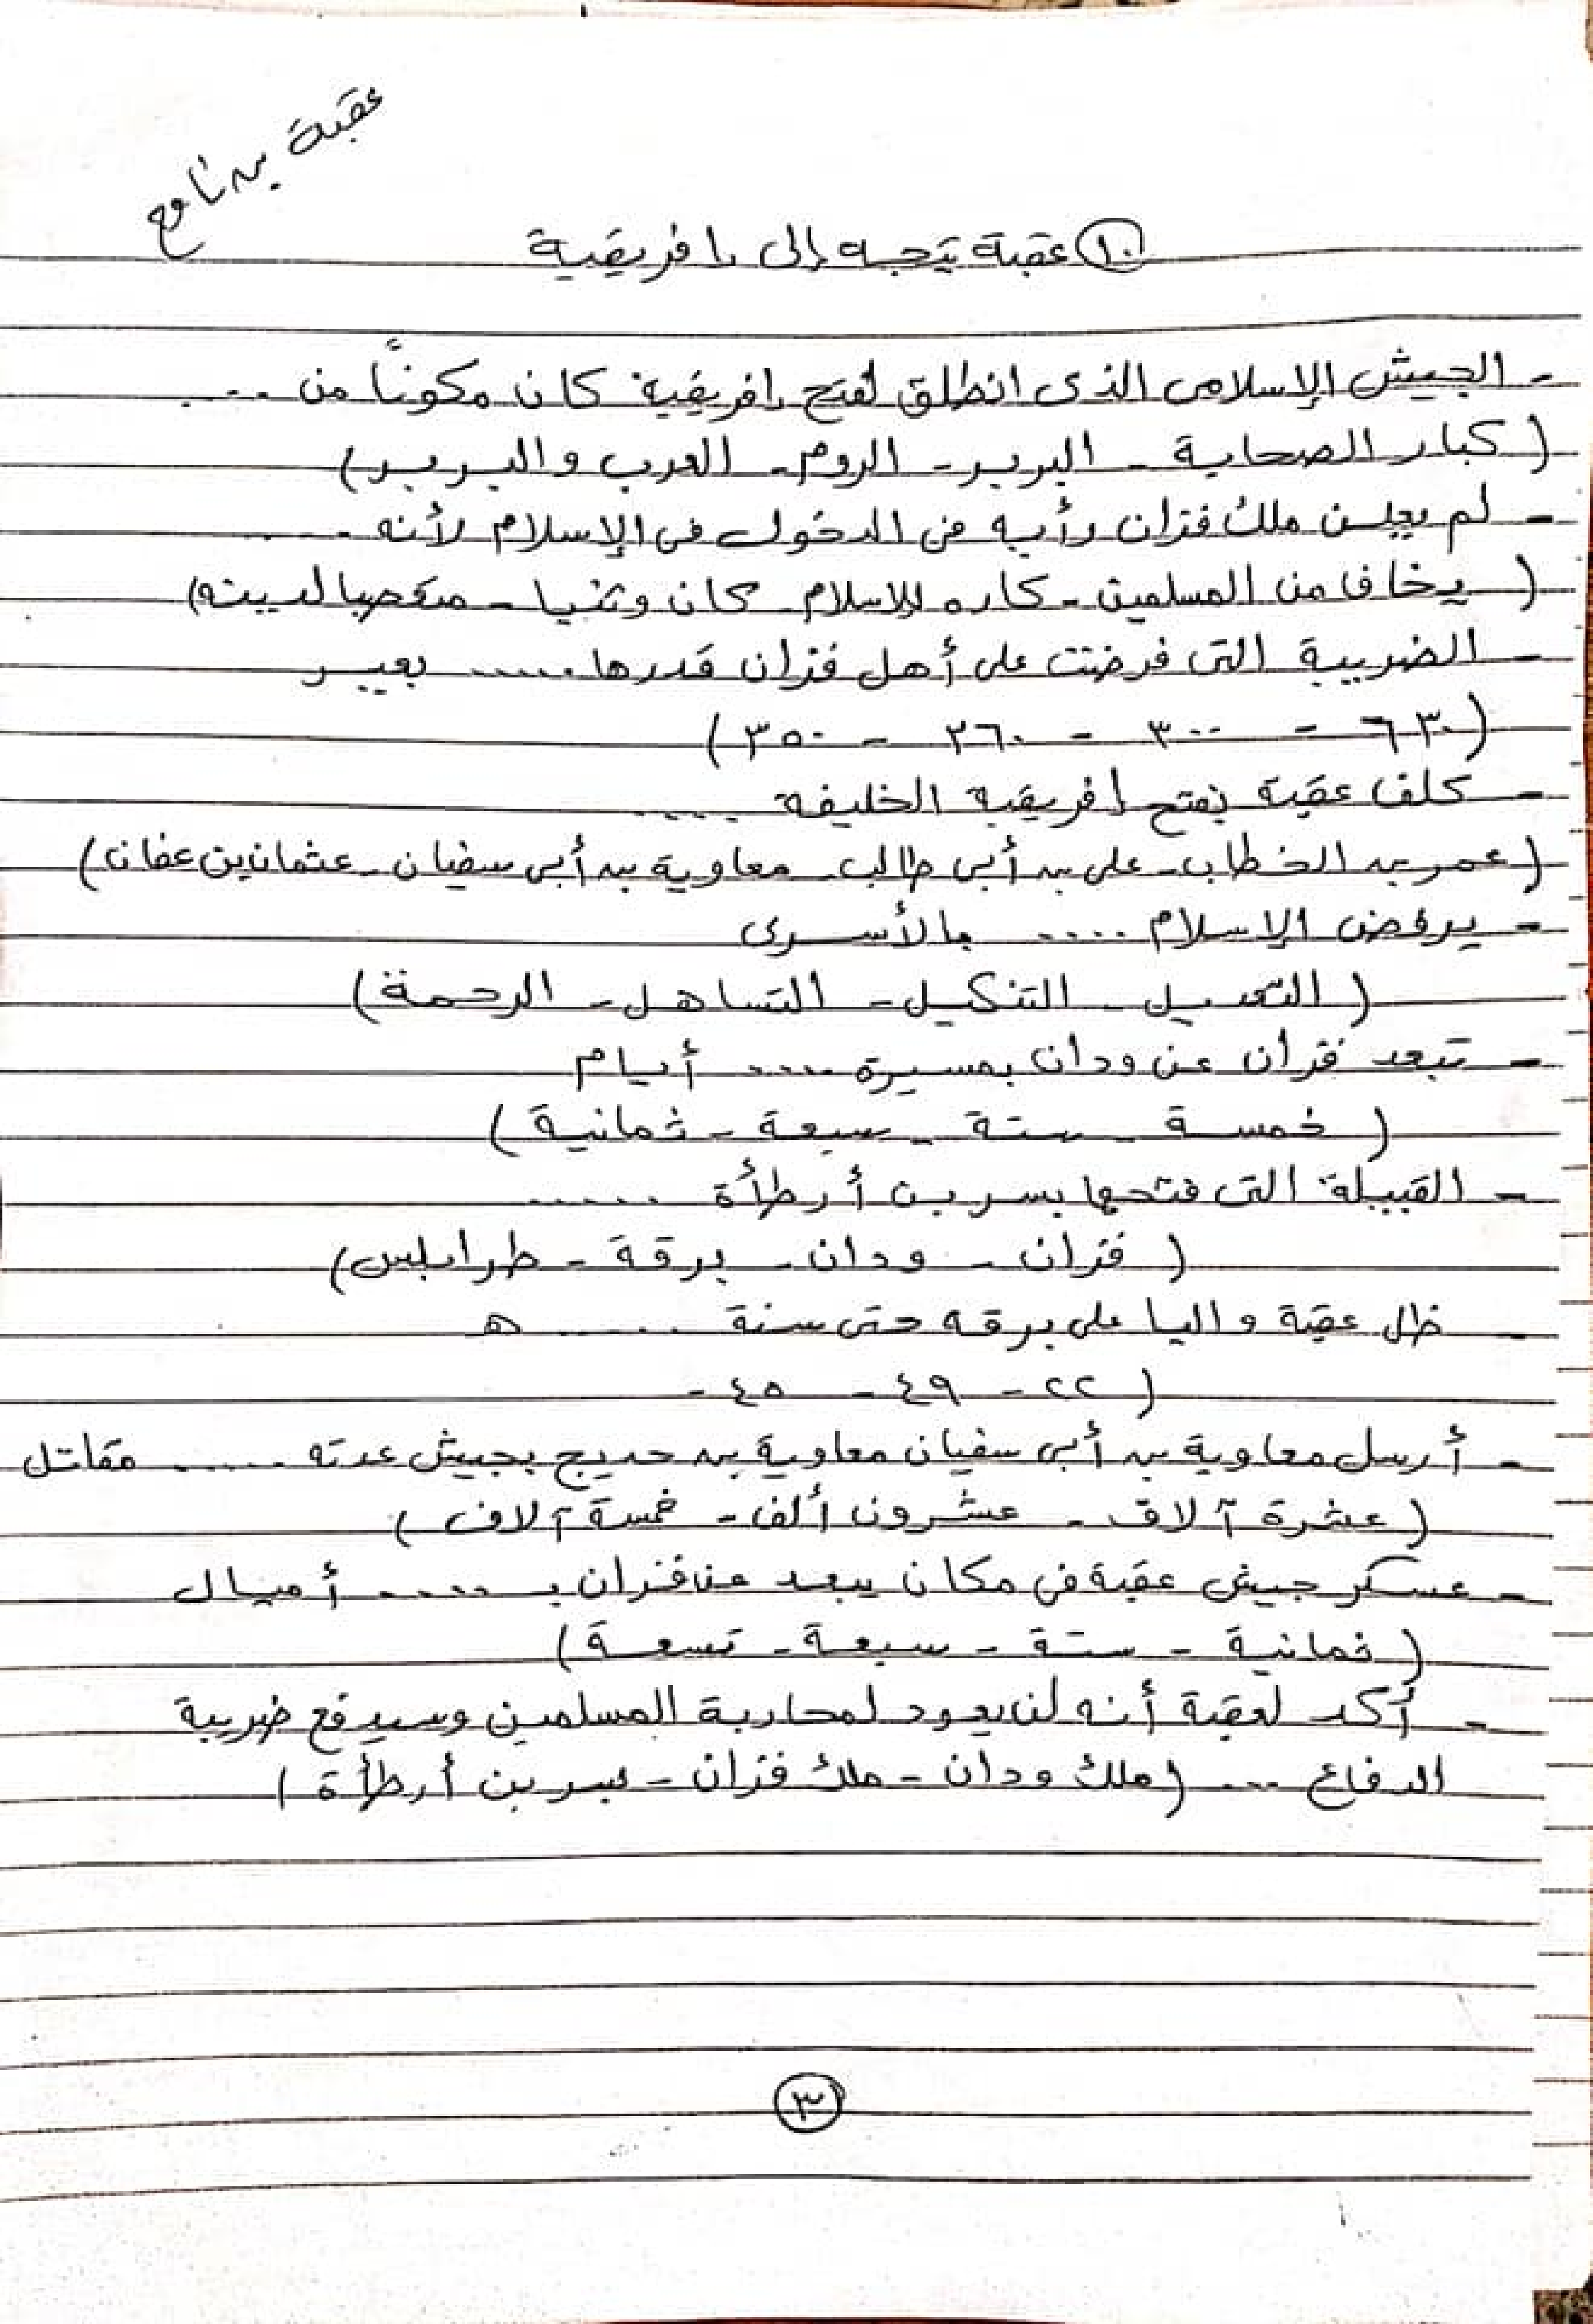 عقبة بن نافع
١٠ عقبة يتجه إلى إفريقية
- الجيش الإسلامى الذى انطلق لفتح إفريقية كان مكوناً من ....
( كبار الصحابة - البربر - الروم - العرب والبربر )
- لم يعلن ملك فزان رأيه فى الدخول فى الإسلام لأنه ....
( يخاف من المسلمين - كاره للإسلام - كان وثنيا - متعصبا لدينه )
- الضريبة التى فرضت على أهل فزان قدرها ..... بعير
( ٦٣٠ - ٣٠٠ - ٢٦٠ - ٣٥٠ )
- كلف عقبة بفتح إفريقية الخليفة ....
( عمر بن الخطاب - على بن أبى طالب - معاوية بن أبى سفيان - عثمان بن عفان )
- يرفض الإسلام .... بالأسرى
( التعديل - التنكيل - التساهل - الرحمة )
- تبعد فزان عن ودان بمسيرة .... أيام
( خمسة - ستة - سبعة - ثمانية )
- القبيلة التى فتحها بسر بن أرطأة .....
( فزان - ودان - برقة - طرابلس )
- ظل عقبة واليا على برقه حتى سنة ..... هـ
( ٢٢ - ٤٩ - ٤٥ -
- أرسل معاوية بن أبى سفيان معاوية بن حديج بجيش عدته ..... مقاتل
( عشرة آلاف - عشرون ألف - خمسة آلاف )
- عسكر جيش عقبة فى مكان يبعد عن فزان بـ ..... أميال
( ثمانية - ستة - سبعة - تسعة )
- أكد لعقبة أنه لن يعود لمحاربة المسلمين وسيدفع ضريبة
الدفاع ... ( ملك ودان - ملك فزان - بسر بن أرطأة )
٣